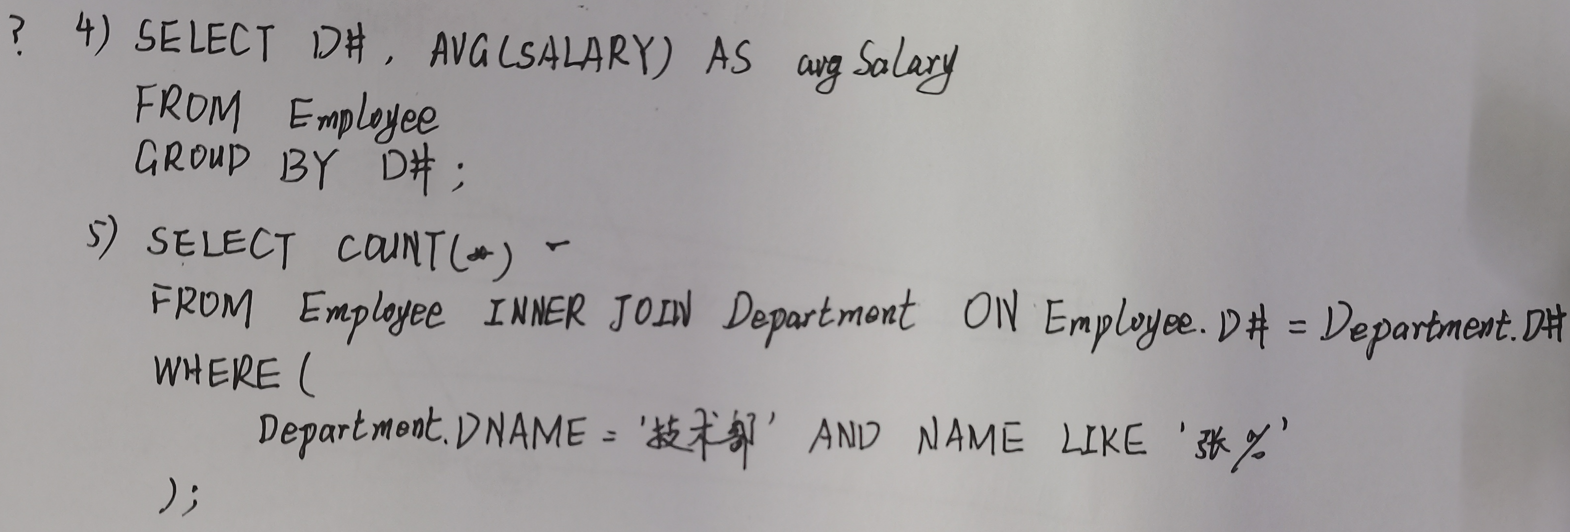 ? 4) SELECT D#, AVG(SALARY) AS avgSalary
FROM Employee
GROUP BY D#;
5) SELECT COUNT(*)
FROM Employee INNER JOIN Department ON Employee.D# = Department.D#
WHERE (
Department.DNAME = '技术部' AND NAME LIKE '张%'
);